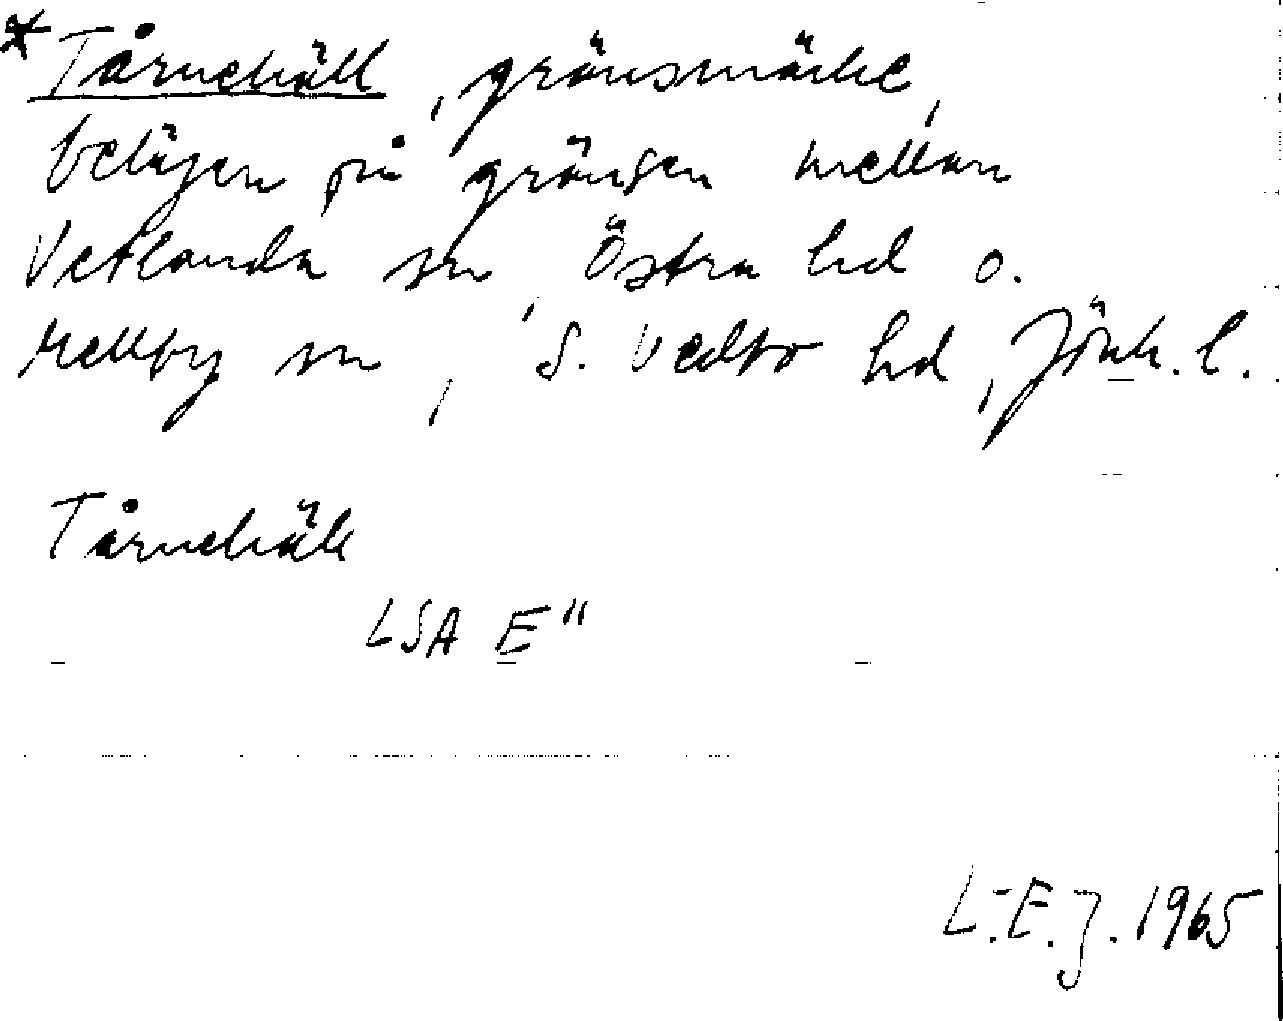 *Tårnehäll, gränsmärke,
belägen på gränsen mellan
Vetlanda sn, Östra hd o.
Mellby sn, S. Vedbo hd, Jönk. l.
Tårnehäll
LSA E"
L.E.J. 1965